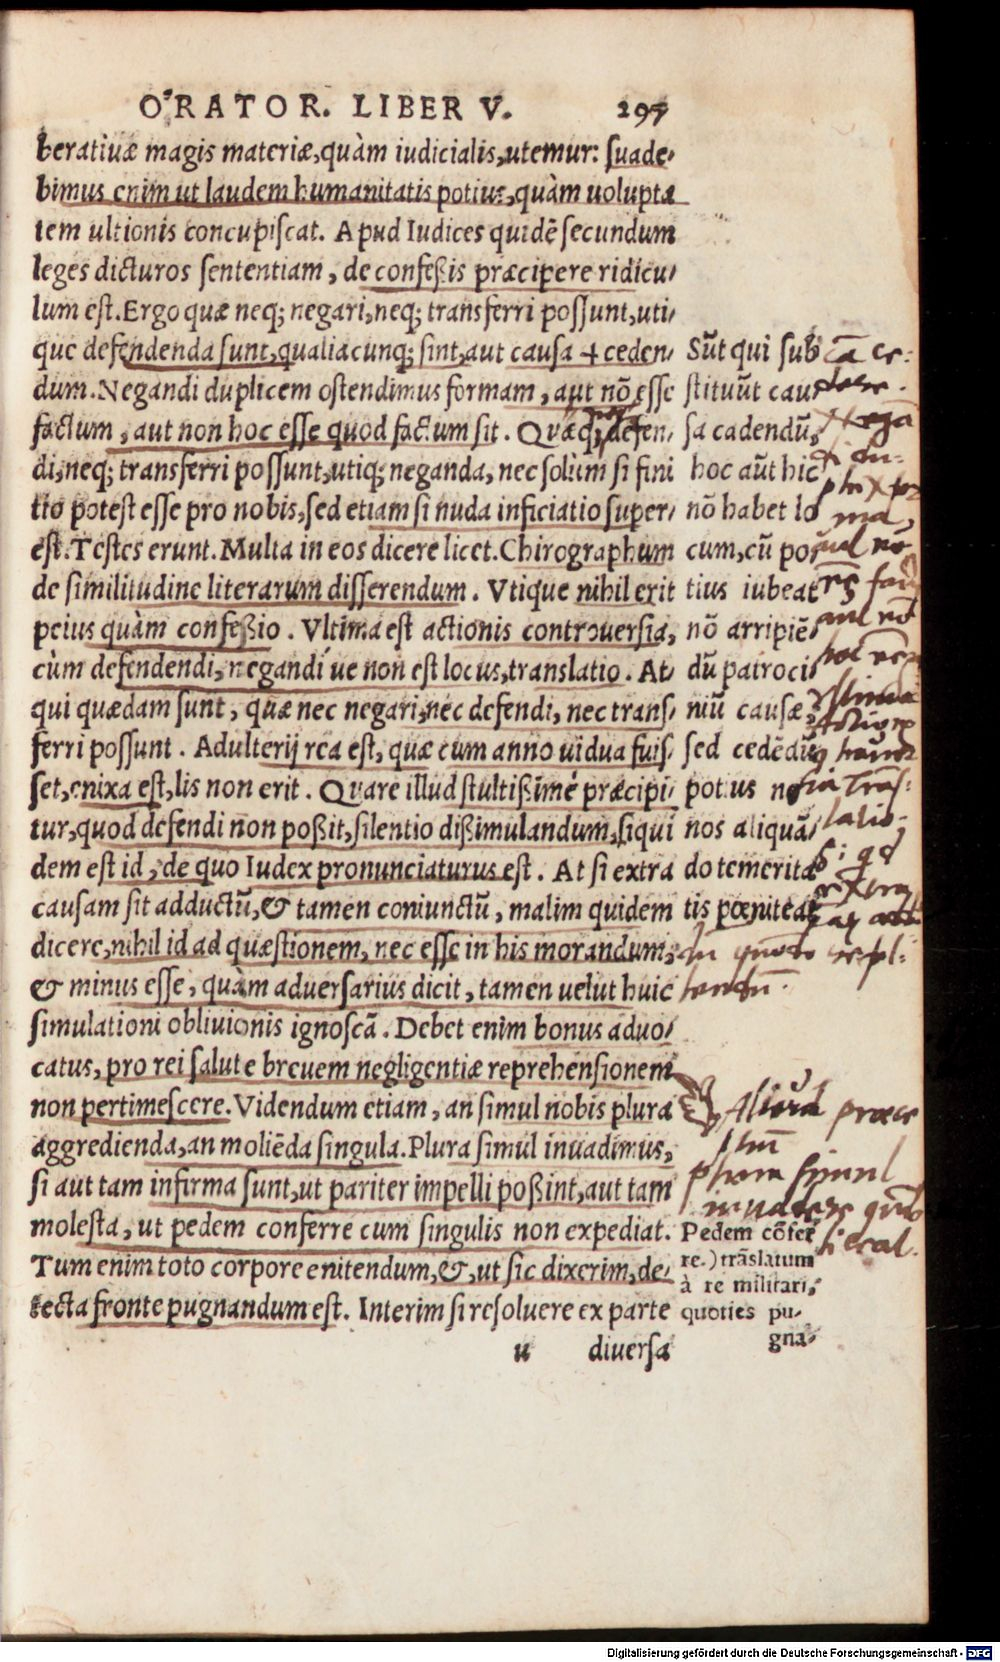 ORATOR. LIBER V. 297
beratiuæ magis materiæ, quàm iudicialis, utemur: suade-
bimus enim ut laudem humanitatis potius, quàm uolupta
tem ultionis concupiscat. Apud Iudices quidē secundum
leges dicturos sententiam, de confeßis præcipere ridicu-
lum est. Ergo quæ neq; negari, neq; transferri possunt, uti-
que defendenda sunt, qualiacunq; sint, aut causa + ceden-
dum. Negandi duplicem ostendimus formam, aut nō esse
factum, aut non hoc esse quod factum sit. Quæ neq; defen-
di, neq; transferri possunt, utiq; neganda, nec solum si fini
tio potest esse pro nobis, sed etiam si nuda inficiatio super-
est. Testes erunt. Multa in eos dicere licet. Chirographum
de similitudine literarum disserendum. Vtique nihil erit
peius quàm confeßio. Vltima est actionis controuersia,
cùm defendendi, negandi ue non est locus, translatio. At-
qui quædam sunt, quæ nec negari, nec defendi, nec trans-
ferri possunt. Adulterij rea est, quæ cum anno uidua fuis-
set, enixa est, lis non erit. Quare illud stultißimè præcipi-
tur, quod defendi non poßit, silentio dißimulandum, siqui
dem est id, de quo Iudex pronunciaturus est. At si extra
causam sit adductū, & tamen coniunctū, malim quidem
dicere, nihil id ad quæstionem, nec esse in his morandum:
& minus esse, quàm aduersarius dicit, tamen uelut huic
simulationi obliuionis ignoscā. Debet enim bonus aduo-
catus, pro rei salute breuem negligentiæ reprehensionem
non pertimescere. Videndum etiam, an simul nobis plura
aggredienda, an moliēda singula. Plura simul inuadimus,
si aut tam infirma sunt, ut pariter impelli poßint, aut tam
molesta, ut pedem conferre cum singulis non expediat.
Tum enim toto corpore enitendum, &, ut sic dixerim, de-
recta fronte pugnandum est. Interim si resoluere ex parte
u diuersa
Sūt qui sub
stituūt cau
sa cadendū,
hoc aūt hic
nō habet lo
cum, cū po-
tius iubeat
nō arripiē-
dū patroci-
niū causæ,
sed cedēdū
potius ne
nos aliquā-
do temerita
tis pœniteat
Pedem cōfer
re.) trāslatum
à re militari,
quoties pu-
gna-
cā ce-
dere.
Negā
di du-
plex for
ma,
uel nō
aut nō
Vltima
Actionis
trās-
latio.
plura simul
inuadere